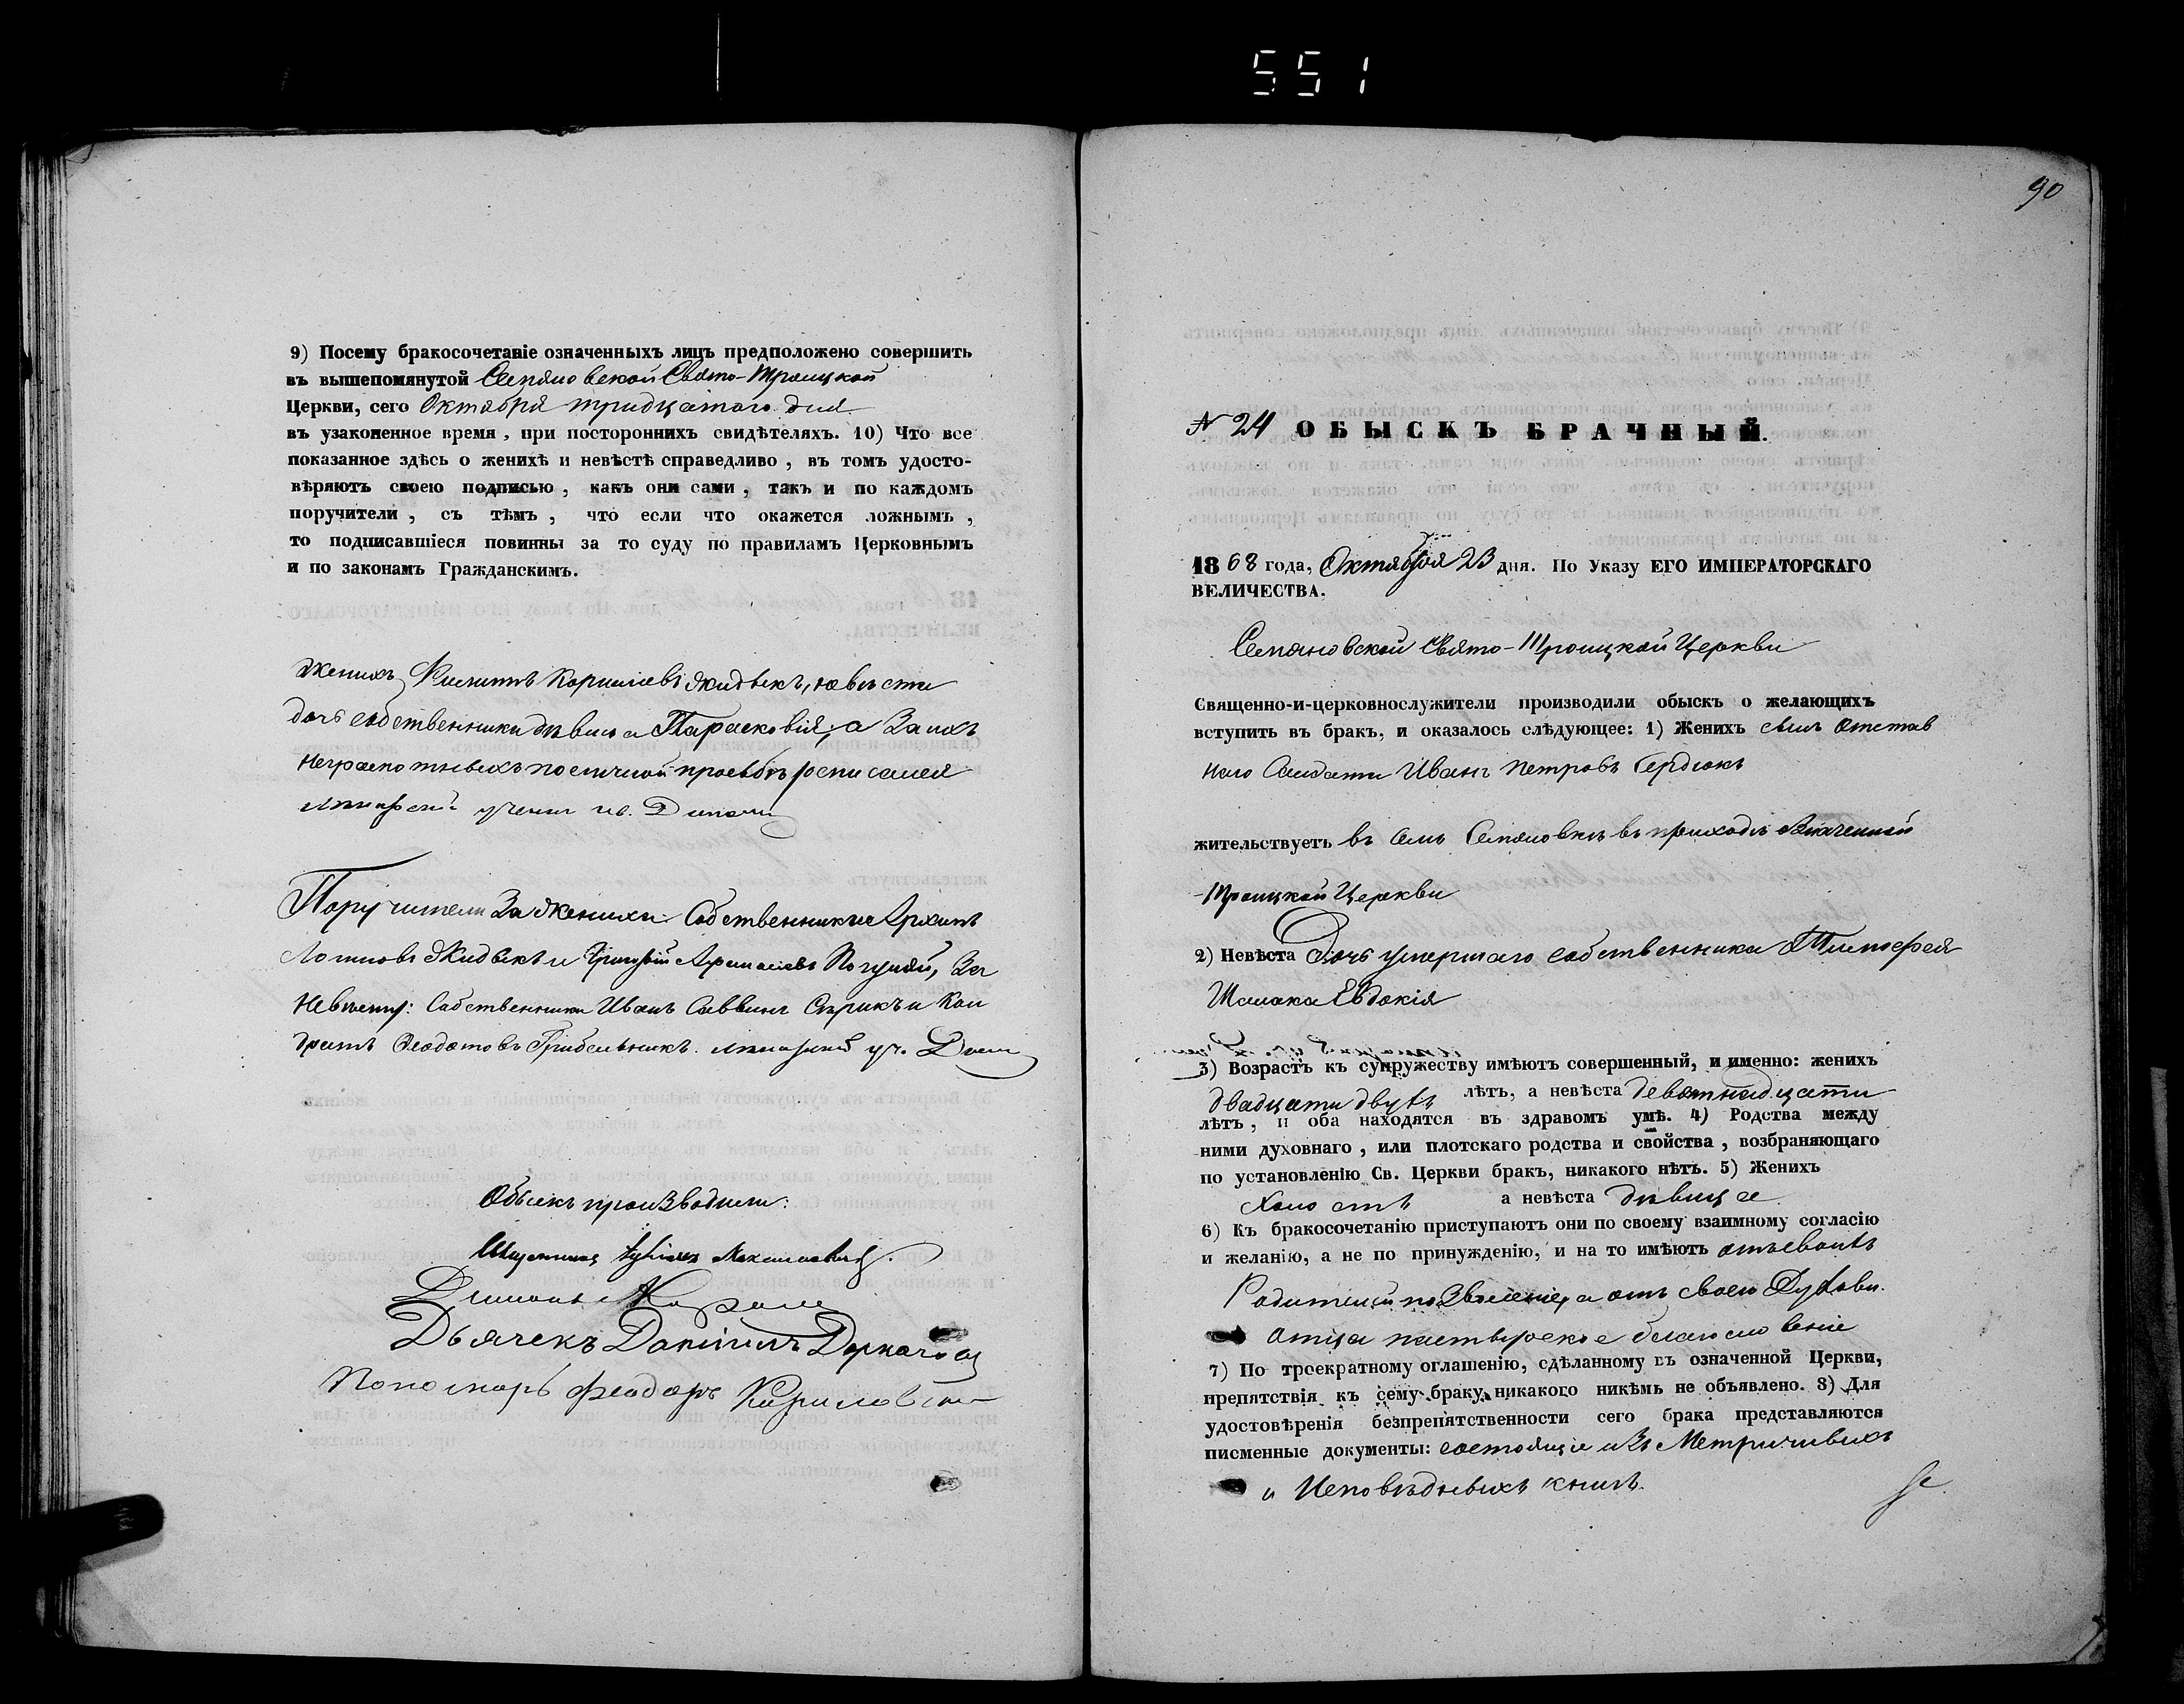 551
9) Посему бракосочетаніе означенныхъ лицъ предположено совершить
въ вышепомянутой Семяновской Свято-Троицкой
Церкви, сего Октября тридцатаго дня
въ узаконенное время, при постороннихъ свидѣтеляхъ. 10) Что все
показанное здѣсь о женихѣ и невѣстѣ справедливо, въ томъ удосто-
вѣряютъ своею подписью, какъ они сами, такъ и по каждомъ
поручители, съ тѣмъ, что если что окажется ложнымъ,
то подписавшіеся повинны за то суду по правиламъ Церковнымъ
и по законамъ Гражданскимъ.
Женихъ Филиппъ Корниліевъ Жидыкъ, невѣста
дочь собственника дѣвица Парасковія, а за ихъ
неграмотныхъ по личной просьбѣ росписался
Поручители За Жениха Собственники Архипъ
Логиновъ Жидыкъ и Григорій За
Невѣсту: Собственники Иванъ Саввинъ Сѣрикъ и Кон
дратъ Феодотовъ Грибельникъ.
Обыскъ производили:
Священникъ
Дьячекъ Даніилъ
Пономарь Феодоръ
90
№ 24 ОБЫСКЪ БРАЧНЫЙ.
1868 года, Октября 23 дня. По Указу ЕГО ИМПЕРАТОРСКАГО
ВЕЛИЧЕСТВА.
Семяновской Свято-Троицкой Церкви
Священно-и-церковнослужители производили обыскъ о желающихъ
вступить въ бракъ, и оказалось слѣдующее: 1) Женихъ сынъ Отстав
наго Солдата Иванъ Петровъ Сердюкъ
жительствуетъ въ селѣ Семяновкѣ въ приходѣ означенной
Троицкой Церкви
2) Невѣста Дочь умершаго собственника Тимофея
Шамака Евдокія
3) Возрастъ къ супружеству имѣютъ совершенный, и именно: женихъ
двадцати двухъ лѣтъ, а невѣста девятнадцати
лѣтъ, и оба находятся въ здравомъ умѣ. 4) Родства между
ними духовнаго, или плотскаго родства и свойства, возбраняющаго
по установленію Св. Церкви бракъ, никакого нѣтъ. 5) Женихъ
Холостъ а невѣста дѣвица
6) Къ бракосочетанію приступаютъ они по своему взаимному согласію
и желанію, а не по принужденію, и на то имѣютъ отъ своихъ
Родителей позволеніе, а отъ своего Духовн.
Отца пастырское благословеніе
7) По троекратному оглашенію, сдѣланному въ означенной Церкви,
препятствія къ сему браку никакого никѣмъ не объявлено. 8) Для
удостовѣренія безпрепятственности сего брака представляются
писменные документы: состоящіе изъ Метричныхъ
и Исповѣдныхъ книгъ.